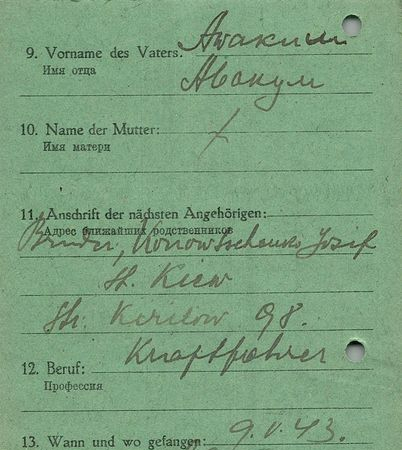 9. Vorname des Vaters: Awakum
Имя отца Авакум
10. Name der Mutter:
Имя матери
11. Anschrift der nächsten Angehörigen:
Адрес ближайших родственников
Bruder, Josif
st. Kiew
Str. Kirilow 98.
12. Beruf: Kraftfahrer
Профессия
13. Wann und wo gefangen: 9.V.43.